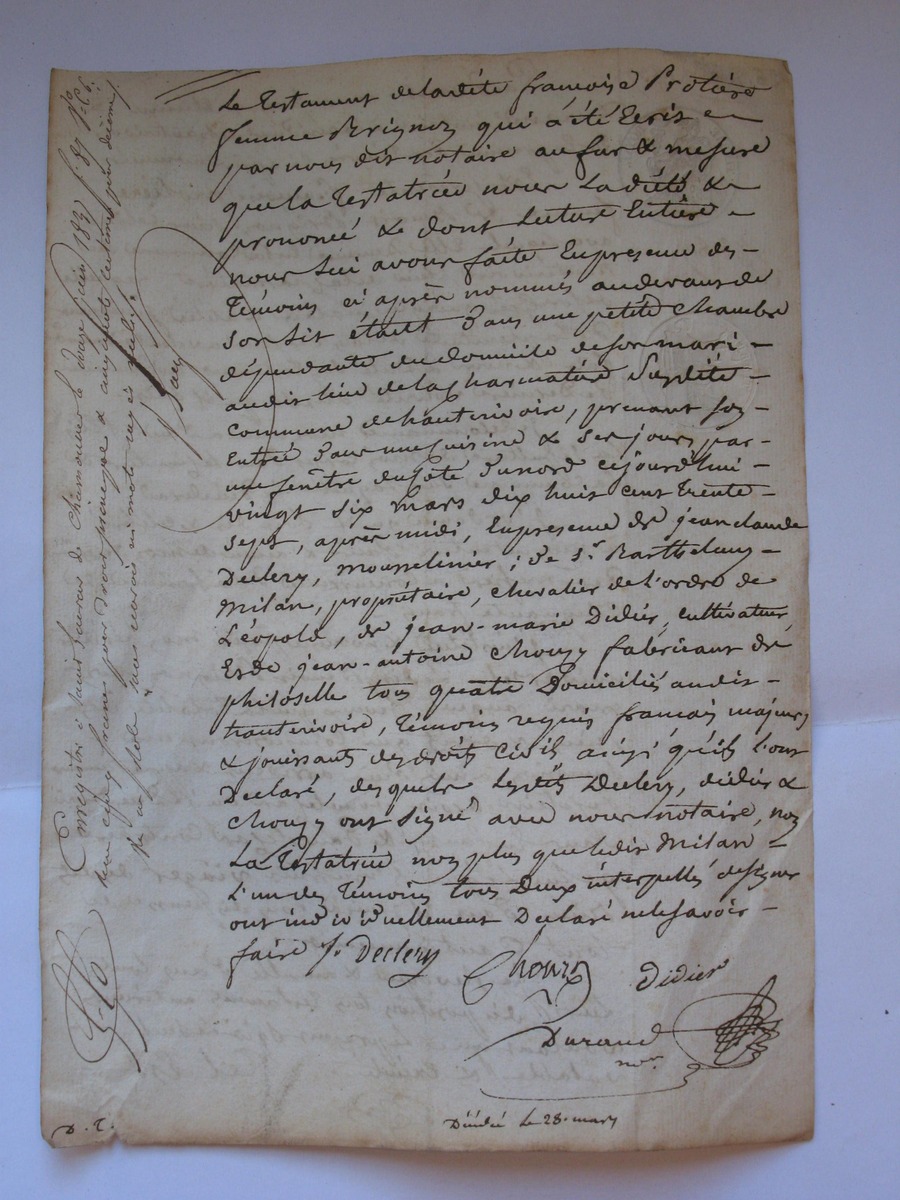 Le Testament de ladite françoise Protière
femme Perignon qui a été Ecrit en
par nous dit notaire au fur & mesure
que la Testatrice nous La dicté &
prononcé & dont Lecture Entière
nous lui avons faite En presence des
Témoins ci après nommés au devant de
son Lit étant dans une petite chambre
dépendante du domicile de son mari
audit lieu de la Charmatière Susdite
commune de hauterivoire, prenant son
Entrée dans une cuisine & ses jours par
une fenêtre du côté du nord cejourd'hui
vingt six mars dix huit cent Trente
sept, après midi, En presence de jean claude
Declery, mousselinier; de Sr. Barthelemy
Milan, propriétaire, chevalier de l'ordre de
Léopold, de jean-marie Didier, cultivateur
Et de jean-antoine Chouzy fabricant de
philoselle tous quatre Domiciliés audit
hauterivoire, Témoins requis français majeurs
& jouissants des droits civils ainsi qu'ils l'ont
Declaré, desquels Lesdits Declery, didier &
Chouzy ont signé avec nous notaire, non
La Testatrice non plus que ledit Milan
l'un des Témoins tous Deux interpellés de signer
ont individuellement Declaré ne le savoir
faire J. Declery Chouzy Didier
Durand
nore.
D. T.
le 28. mars
Enregistré à Saint Laurent de Chamousset le douze juin 1837 f. 87
cinq francs pour droit principal & cinquante centimes pour décime